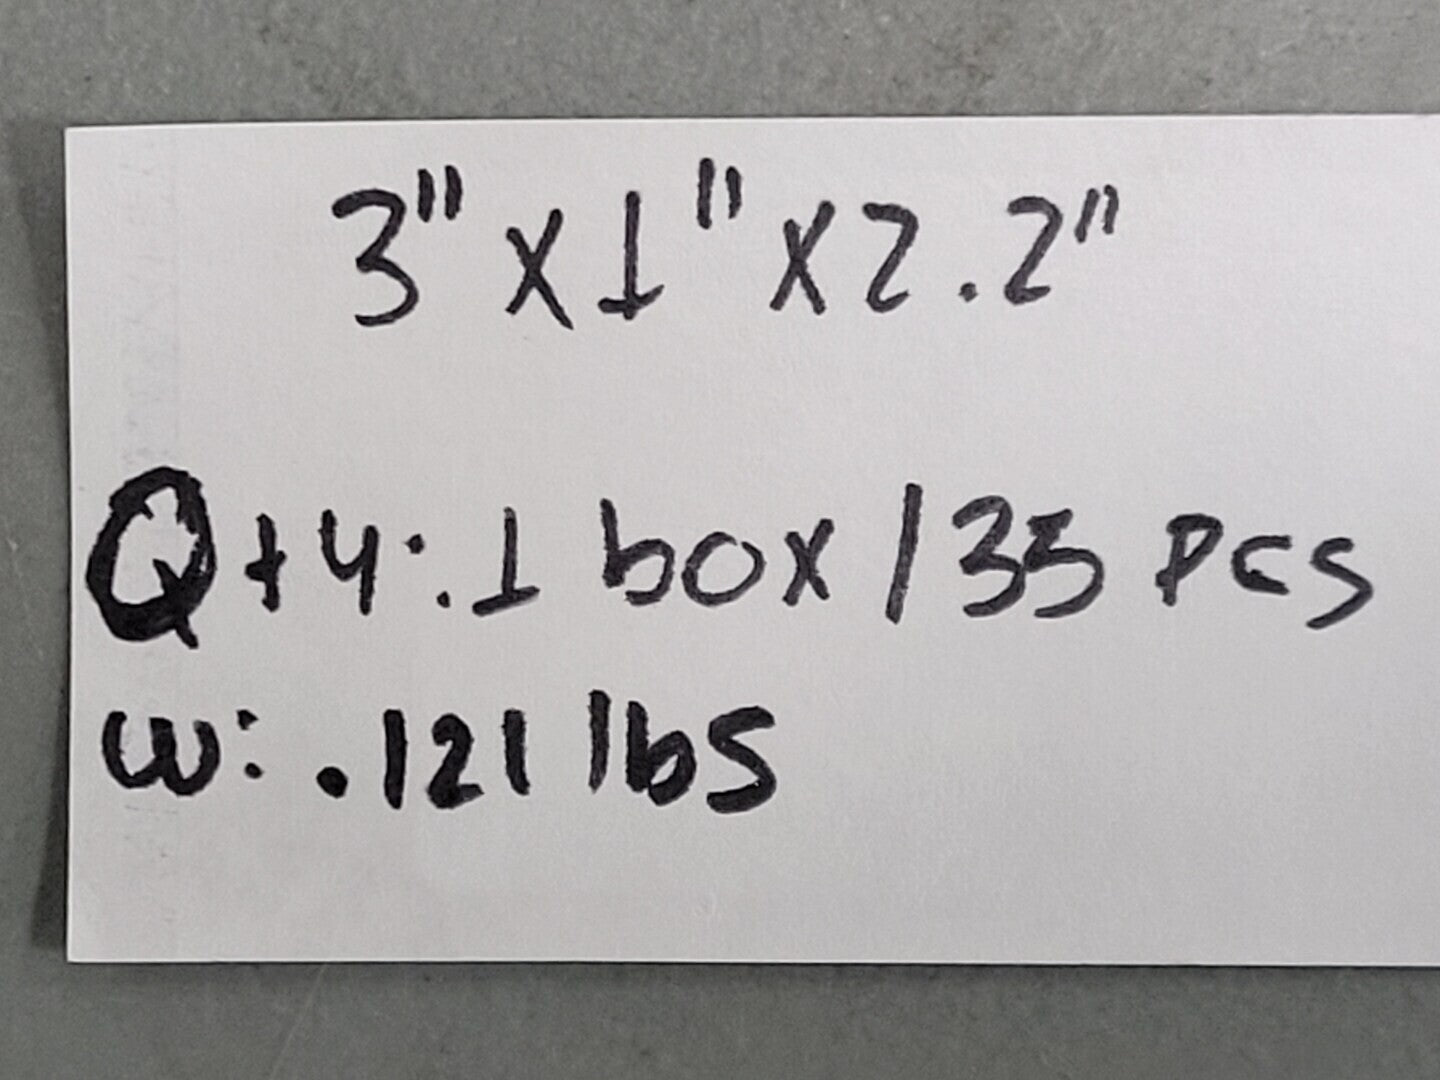 3" x 1" x 2.2"
Qty: 1 box / 35 pcs
W: .121 lbs